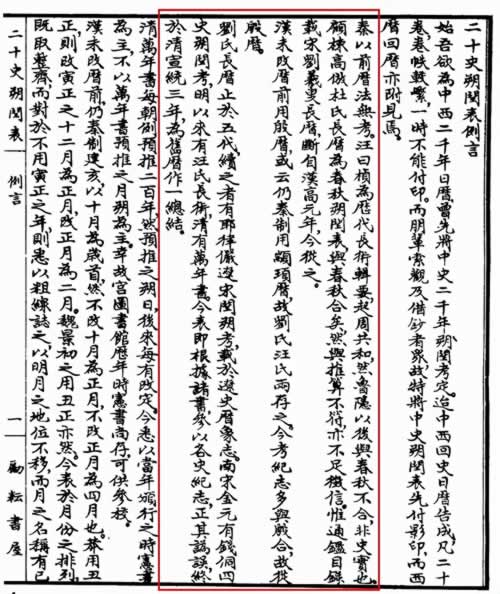 二十史朔閏表例言
始吾欲為中西二千年日曆,曾先將中史二千年朔閏考定。迨中西回史日曆告成,凡二十
卷,卷帙較繁,一時不能付印。而朋輩索觀及借鈔者眾,故特將中史朔閏表先付影印,而西
曆回曆亦附見焉。
秦以前曆法無考。汪曰楨為歷代長術輯要起周共和,然魯隱以後與春秋不合,非史實也。
顧棟高仿杜氏長曆為春秋朔閏表,與春秋合矣,然與推算不符,亦不足徵信。惟通鑑目錄
載宋劉羲叟長曆,斷自漢高元年,今從之。
漢未改曆前用殷曆,或云仍秦制用顓頊曆,故劉氏汪氏兩存之。今考紀志多與殷合,故從
殷曆。
劉氏長曆止於五代,續之者有耶律儼遼宋閏朔考,載於遼史曆象志。南宋金元有錢侗四
史朔閏考,明以來有汪氏長術,清有萬年書。今表即根據諸書,參以各史紀志,正其譌誤,終
於清宣統三年,為舊曆作一總結。
清萬年書每朝例預推二百年,然預推之朔日,後來每有改定。今悉以當年頒行之時憲書
為主,不以萬年書預推之月朔為主。幸故宮圖書館歷年時憲書尚存,可供參校。
漢未改曆前,仍秦制建亥,以十月為歲首,然不改十月為正月,不改正月為四月也。莽用丑
正,則改寅正之十二月為正月,改正月為二月。魏景初之用丑正亦然。今表於月份之排列,
既取整齊,而對於不用寅正之年,則悉以粗線誌之,以明月之地位不移,而月之名稱有已
二十史朔閏表 例言 一 勵耘書屋